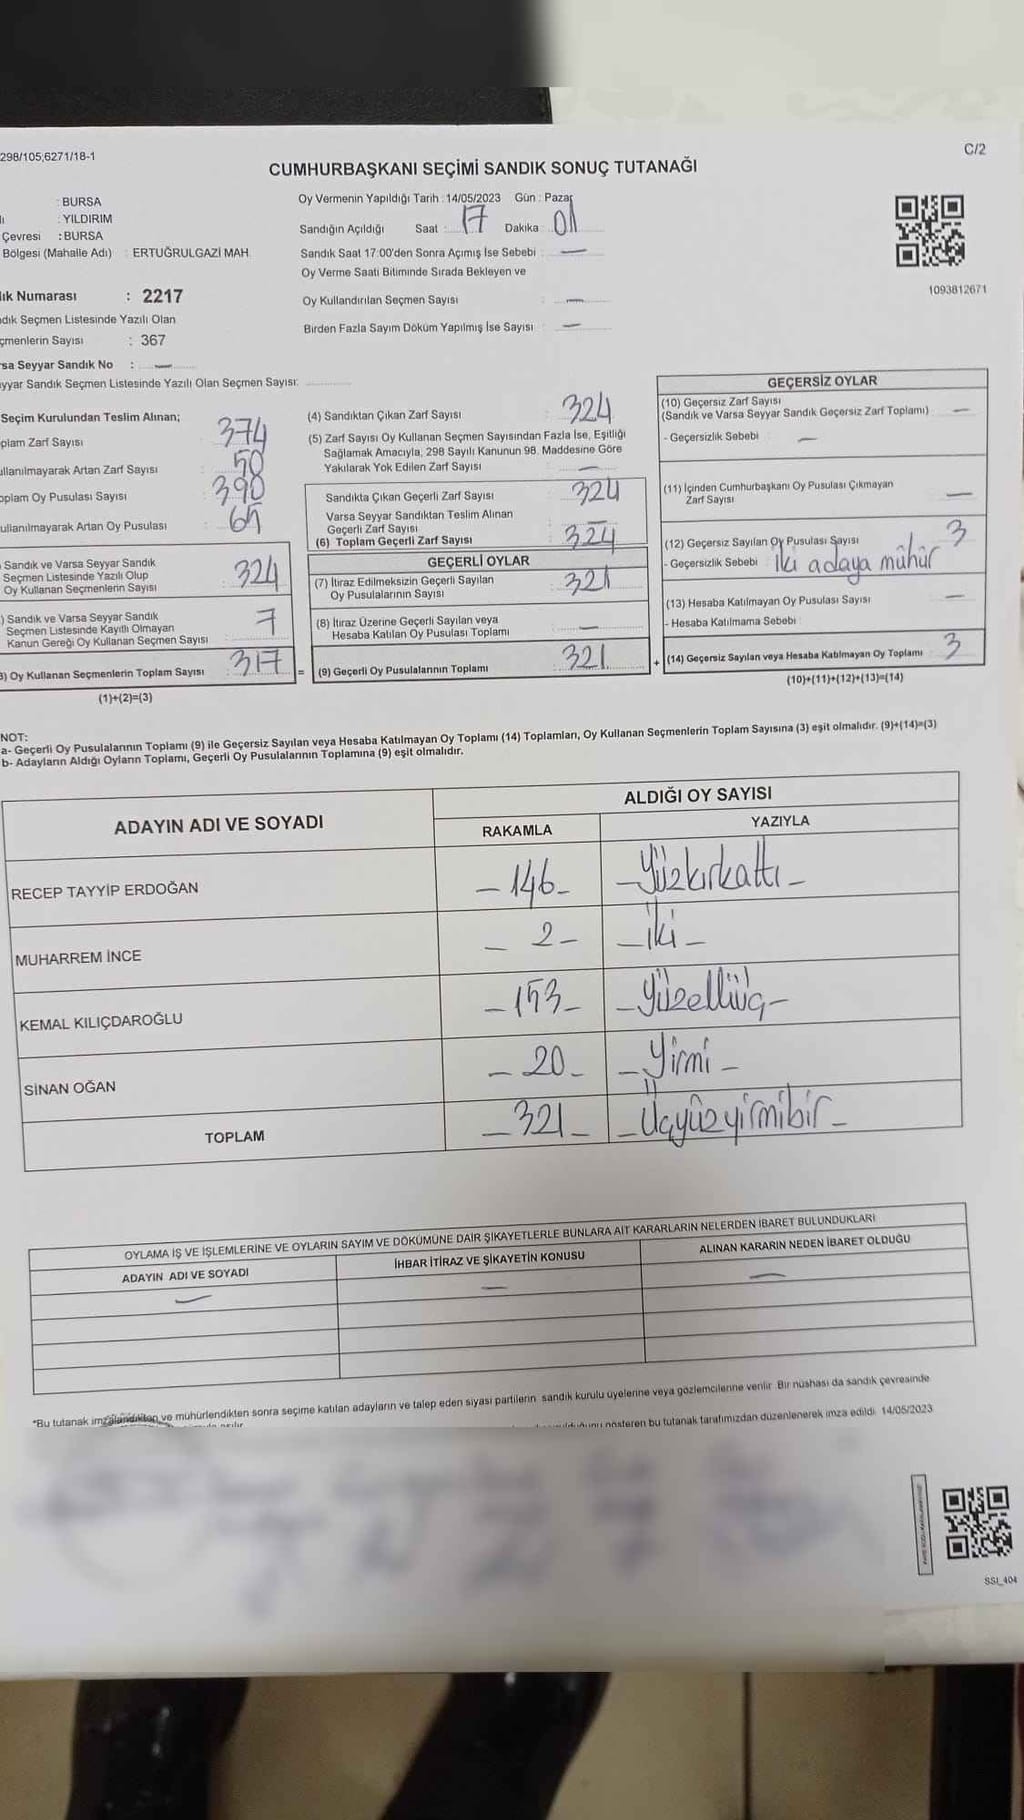 298/105;6271/18-1
C/2
CUMHURBAŞKANI SEÇİMİ SANDIK SONUÇ TUTANAĞI
: BURSA
: YILDIRIM
Çevresi : BURSA
Bölgesi (Mahalle Adı) : ERTUĞRULGAZİ MAH.
Numarası : 2217
Seçmen Listesinde Yazılı Olan
Sayısı : 367
Seyyar Sandık No : —
Sandık Seçmen Listesinde Yazılı Olan Seçmen Sayısı:
Oy Vermenin Yapıldığı Tarih : 14/05/2023 Gün : Pazar
Sandığın Açıldığı Saat : 17 Dakika : 01
Sandık Saat 17:00'den Sonra Açımış İse Sebebi : —
Oy Verme Saati Bitiminde Sırada Bekleyen ve
Oy Kullandırılan Seçmen Sayısı : —
Birden Fazla Sayım Döküm Yapılmış İse Sayısı : —
1093812671
Seçim Kurulundan Teslim Alınan;
Zarf Sayısı : 374
Artan Zarf Sayısı : 50
Oy Pusulası Sayısı : 390
Artan Oy Pusulası : 65
Sandık ve Varsa Seyyar Sandık
Seçmen Listesinde Yazılı Olup
Oy Kullanan Seçmenlerin Sayısı 324
) Sandık ve Varsa Seyyar Sandık
Seçmen Listesinde Kayıtlı Olmayan
Kanun Gereği Oy Kullanan Seçmen Sayısı 7
) Oy Kullanan Seçmenlerin Toplam Sayısı : 317
(1)+(2)=(3)
(4) Sandıktan Çıkan Zarf Sayısı : 324
(5) Zarf Sayısı Oy Kullanan Seçmen Sayısından Fazla İse, Eşitliği
Sağlamak Amacıyla, 298 Sayılı Kanunun 98. Maddesine Göre
Yakılarak Yok Edilen Zarf Sayısı : —
Sandıkta Çıkan Geçerli Zarf Sayısı 324
Varsa Seyyar Sandıktan Teslim Alınan
Geçerli Zarf Sayısı —
(6) Toplam Geçerli Zarf Sayısı 324
GEÇERLİ OYLAR
(7) İtiraz Edilmeksizin Geçerli Sayılan
Oy Pusulalarının Sayısı 321
(8) İtiraz Üzerine Geçerli Sayılan veya
Hesaba Katılan Oy Pusulası Toplamı —
= (9) Geçerli Oy Pusulalarının Toplamı 321
GEÇERSİZ OYLAR
(10) Geçersiz Zarf Sayısı
(Sandık ve Varsa Seyyar Sandık Geçersiz Zarf Toplamı) —
- Geçersizlik Sebebi —
(11) İçinden Cumhurbaşkanı Oy Pusulası Çıkmayan
Zarf Sayısı —
(12) Geçersiz Sayılan Oy Pusulası Sayısı 3
- Geçersizlik Sebebi İki adaya mühür
(13) Hesaba Katılmayan Oy Pusulası Sayısı —
- Hesaba Katılmama Sebebi
+ (14) Geçersiz Sayılan veya Hesaba Katılmayan Oy Toplamı 3
(10)+(11)+(12)+(13)=(14)
NOT:
a- Geçerli Oy Pusulalarının Toplamı (9) ile Geçersiz Sayılan veya Hesaba Katılmayan Oy Toplamı (14) Toplamları, Oy Kullanan Seçmenlerin Toplam Sayısına (3) eşit olmalıdır. (9)+(14)=(3)
b- Adayların Aldığı Oyların Toplamı, Geçerli Oy Pusulalarının Toplamına (9) eşit olmalıdır.
ADAYIN ADI VE SOYADI ALDIĞI OY SAYISI
RAKAMLA YAZIYLA
RECEP TAYYİP ERDOĞAN – 146 – – Yüzkırkaltı –
MUHARREM İNCE – 2 – – İki –
KEMAL KILIÇDAROĞLU – 153 – – Yüzelliüç –
SİNAN OĞAN – 20 – – Yirmi –
TOPLAM – 321 – – Üçyüzyirmibir –
OYLAMA İŞ VE İŞLEMLERİNE VE OYLARIN SAYIM VE DÖKÜMÜNE DAİR ŞİKAYETLERLE BUNLARA AİT KARARLARIN NELERDEN İBARET BULUNDUKLARI
ADAYIN ADI VE SOYADI İHBAR İTİRAZ VE ŞİKAYETİN KONUSU ALINAN KARARIN NEDEN İBARET OLDUĞU
— — —
*Bu tutanak imzalandıktan ve mühürlendikten sonra seçime katılan adayların ve talep eden siyasi partilerin sandık kurulu üyelerine veya gözlemcilerine verilir. Bir nüshası da sandık çevresinde
gösteren bu tutanak tarafımızdan düzenlenerek imza edildi. 14/05/2023
SSI_404